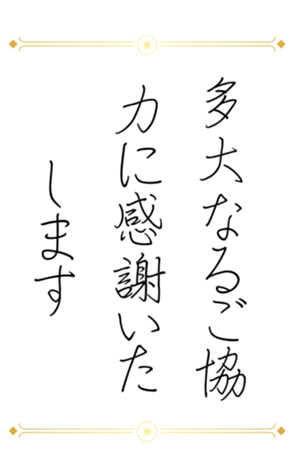 多大なるご協
力に感謝いた
します